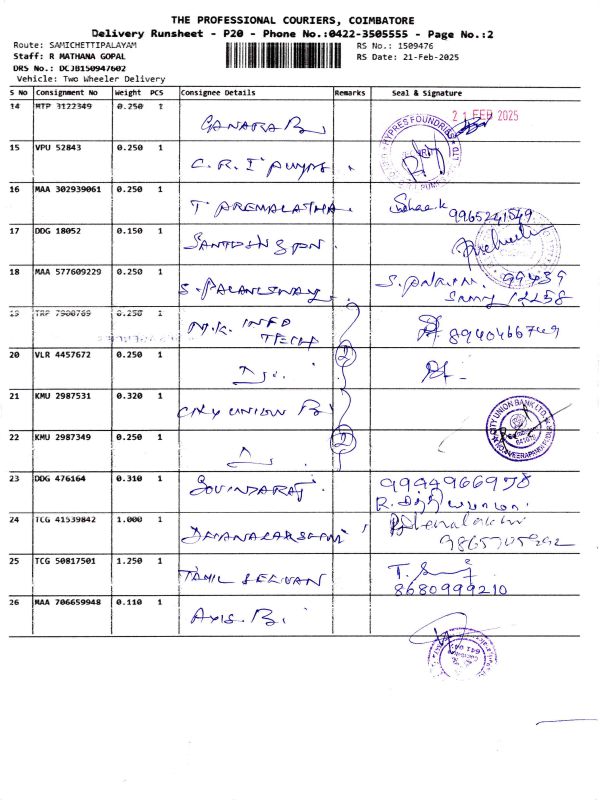 THE PROFESSIONAL COURIERS, COIMBATORE
Delivery Runsheet - P20 - Phone No.:0422-3505555 - Page No.:2
Route: SAMICHETTIPALAYAM
RS No.: 1509476
Staff: R MATHANA GOPAL
RS Date: 21-Feb-2025
DRS No.: DCJB150947602
Vehicle: Two Wheeler Delivery
S No Consignment No Weight PCS Consignee Details Remarks Seal & Signature
14 MTP 3122349 0.250 1
21 FEB 2025
CANARA B
15 VPU 52843 0.250 1
C.R.I PUMPS
16 MAA 302939061 0.250 1
T PREMALATHA
9965241549
17 DDG 18052 0.150 1
18 MAA 577609229 0.250 1
S. PALANISWAMY
99439
12258
19 TRP 7900769 0.250 1
M.K. INFO
TECH
8940466749
20 VLR 4457672 0.250 1
2
21 KMU 2987531 0.320 1
CITY UNION B
CITY UNION BANK LTD.
22 KMU 2987349 0.250 1
2
23 DDG 476164 0.310 1
GOVINDARAJ
9994966978
24 TCG 41539842 1.000 1
DHANALAKSHMI
25 TCG 50817501 1.250 1
TAMIL SELVAN
8680999210
26 MAA 706659948 0.110 1
AXIS. B.